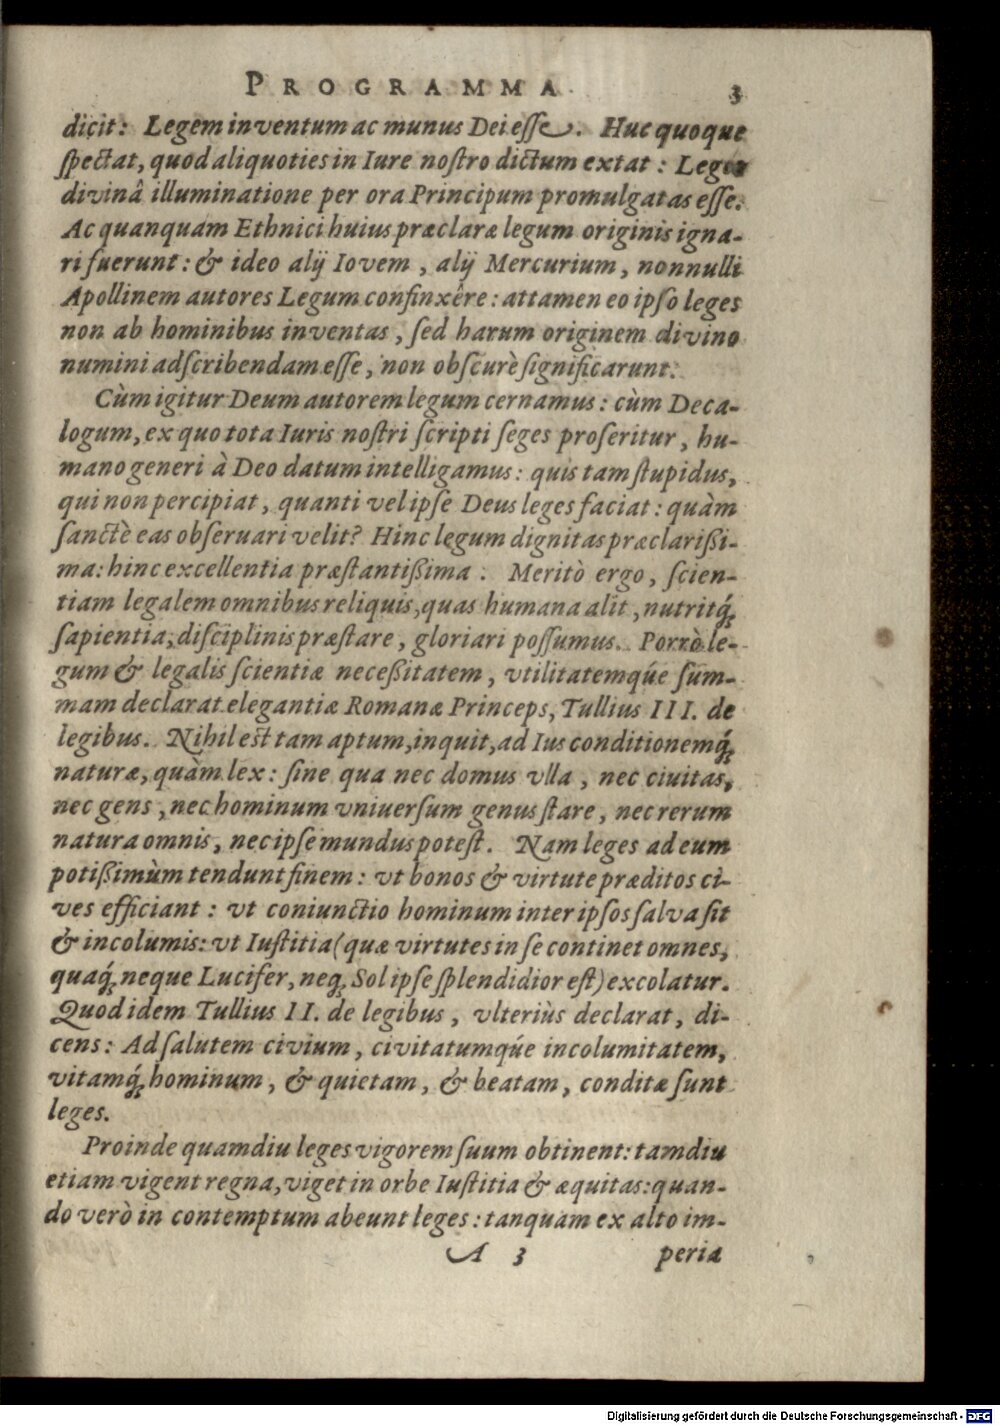 PROGRAMMA. 3
dicit: Legem inventum ac munus Dei esse. Huc quoque
ſpectat, quod aliquoties in Iure noſtro dictum extat: Leges
divinâ illuminatione per ora Principum promulgatas eſſe.
Ac quanquam Ethnici huius præclaræ legum originis igna-
ri fuerunt: & ideo alij Iovem, alij Mercurium, nonnulli
Apollinem autores Legum confinxêre: attamen eo ipſo leges
non ab hominibus inventas, ſed harum originem divino
numini adſcribendam eſſe, non obſcurè ſignificarunt.
Cùm igitur Deum autorem legum cernamus: cùm Deca-
logum, ex quo tota Iuris noſtri ſcripti ſeges proſeritur, hu-
mano generi à Deo datum intelligamus: quis tam ſtupidus,
qui non percipiat, quanti vel ipſe Deus leges faciat: quàm
ſanctè eas obſeruari velit? Hinc legum dignitas præclarißi-
ma: hinc excellentia præſtantißima. Meritò ergo, ſcien-
tiam legalem omnibus reliquis, quas humana alit, nutritq́;
ſapientia, diſciplinis præſtare, gloriari poſſumus. Porrò le-
gum & legalis ſcientiæ neceßitatem, vtilitatemq́ue ſum-
mam declarat elegantiæ Romanæ Princeps, Tullius III. de
legibus. Nihil est tam aptum, inquit, ad Ius conditionemq́;
naturæ, quàm lex: ſine qua nec domus vlla, nec ciuitas,
nec gens, nec hominum vniuerſum genus ſtare, nec rerum
natura omnis, nec ipſe mundus poteſt. Nam leges ad eum
potißimùm tendunt finem: vt bonos & virtute præditos ci-
ves efficiant: vt coniunctio hominum inter ipſos ſalva ſit
& incolumis: vt Iuſtitia (quæ virtutes in ſe continet omnes,
quaq́; neque Lucifer, neq; Sol ipſe ſplendidior eſt) excolatur.
Quod idem Tullius II. de legibus, vlteriùs declarat, di-
cens: Ad ſalutem civium, civitatumq́ue incolumitatem,
vitamq́; hominum, & quietam, & beatam, conditæ ſunt
leges.
Proinde quamdiu leges vigorem ſuum obtinent: tamdiu
etiam vigent regna, viget in orbe Iuſtitia & æquitas: quan-
do verò in contemptum abeunt leges: tanquam ex alto im-
A 3 peria
Digitalisierung gefördert durch die Deutsche Forschungsgemeinschaft - DFG